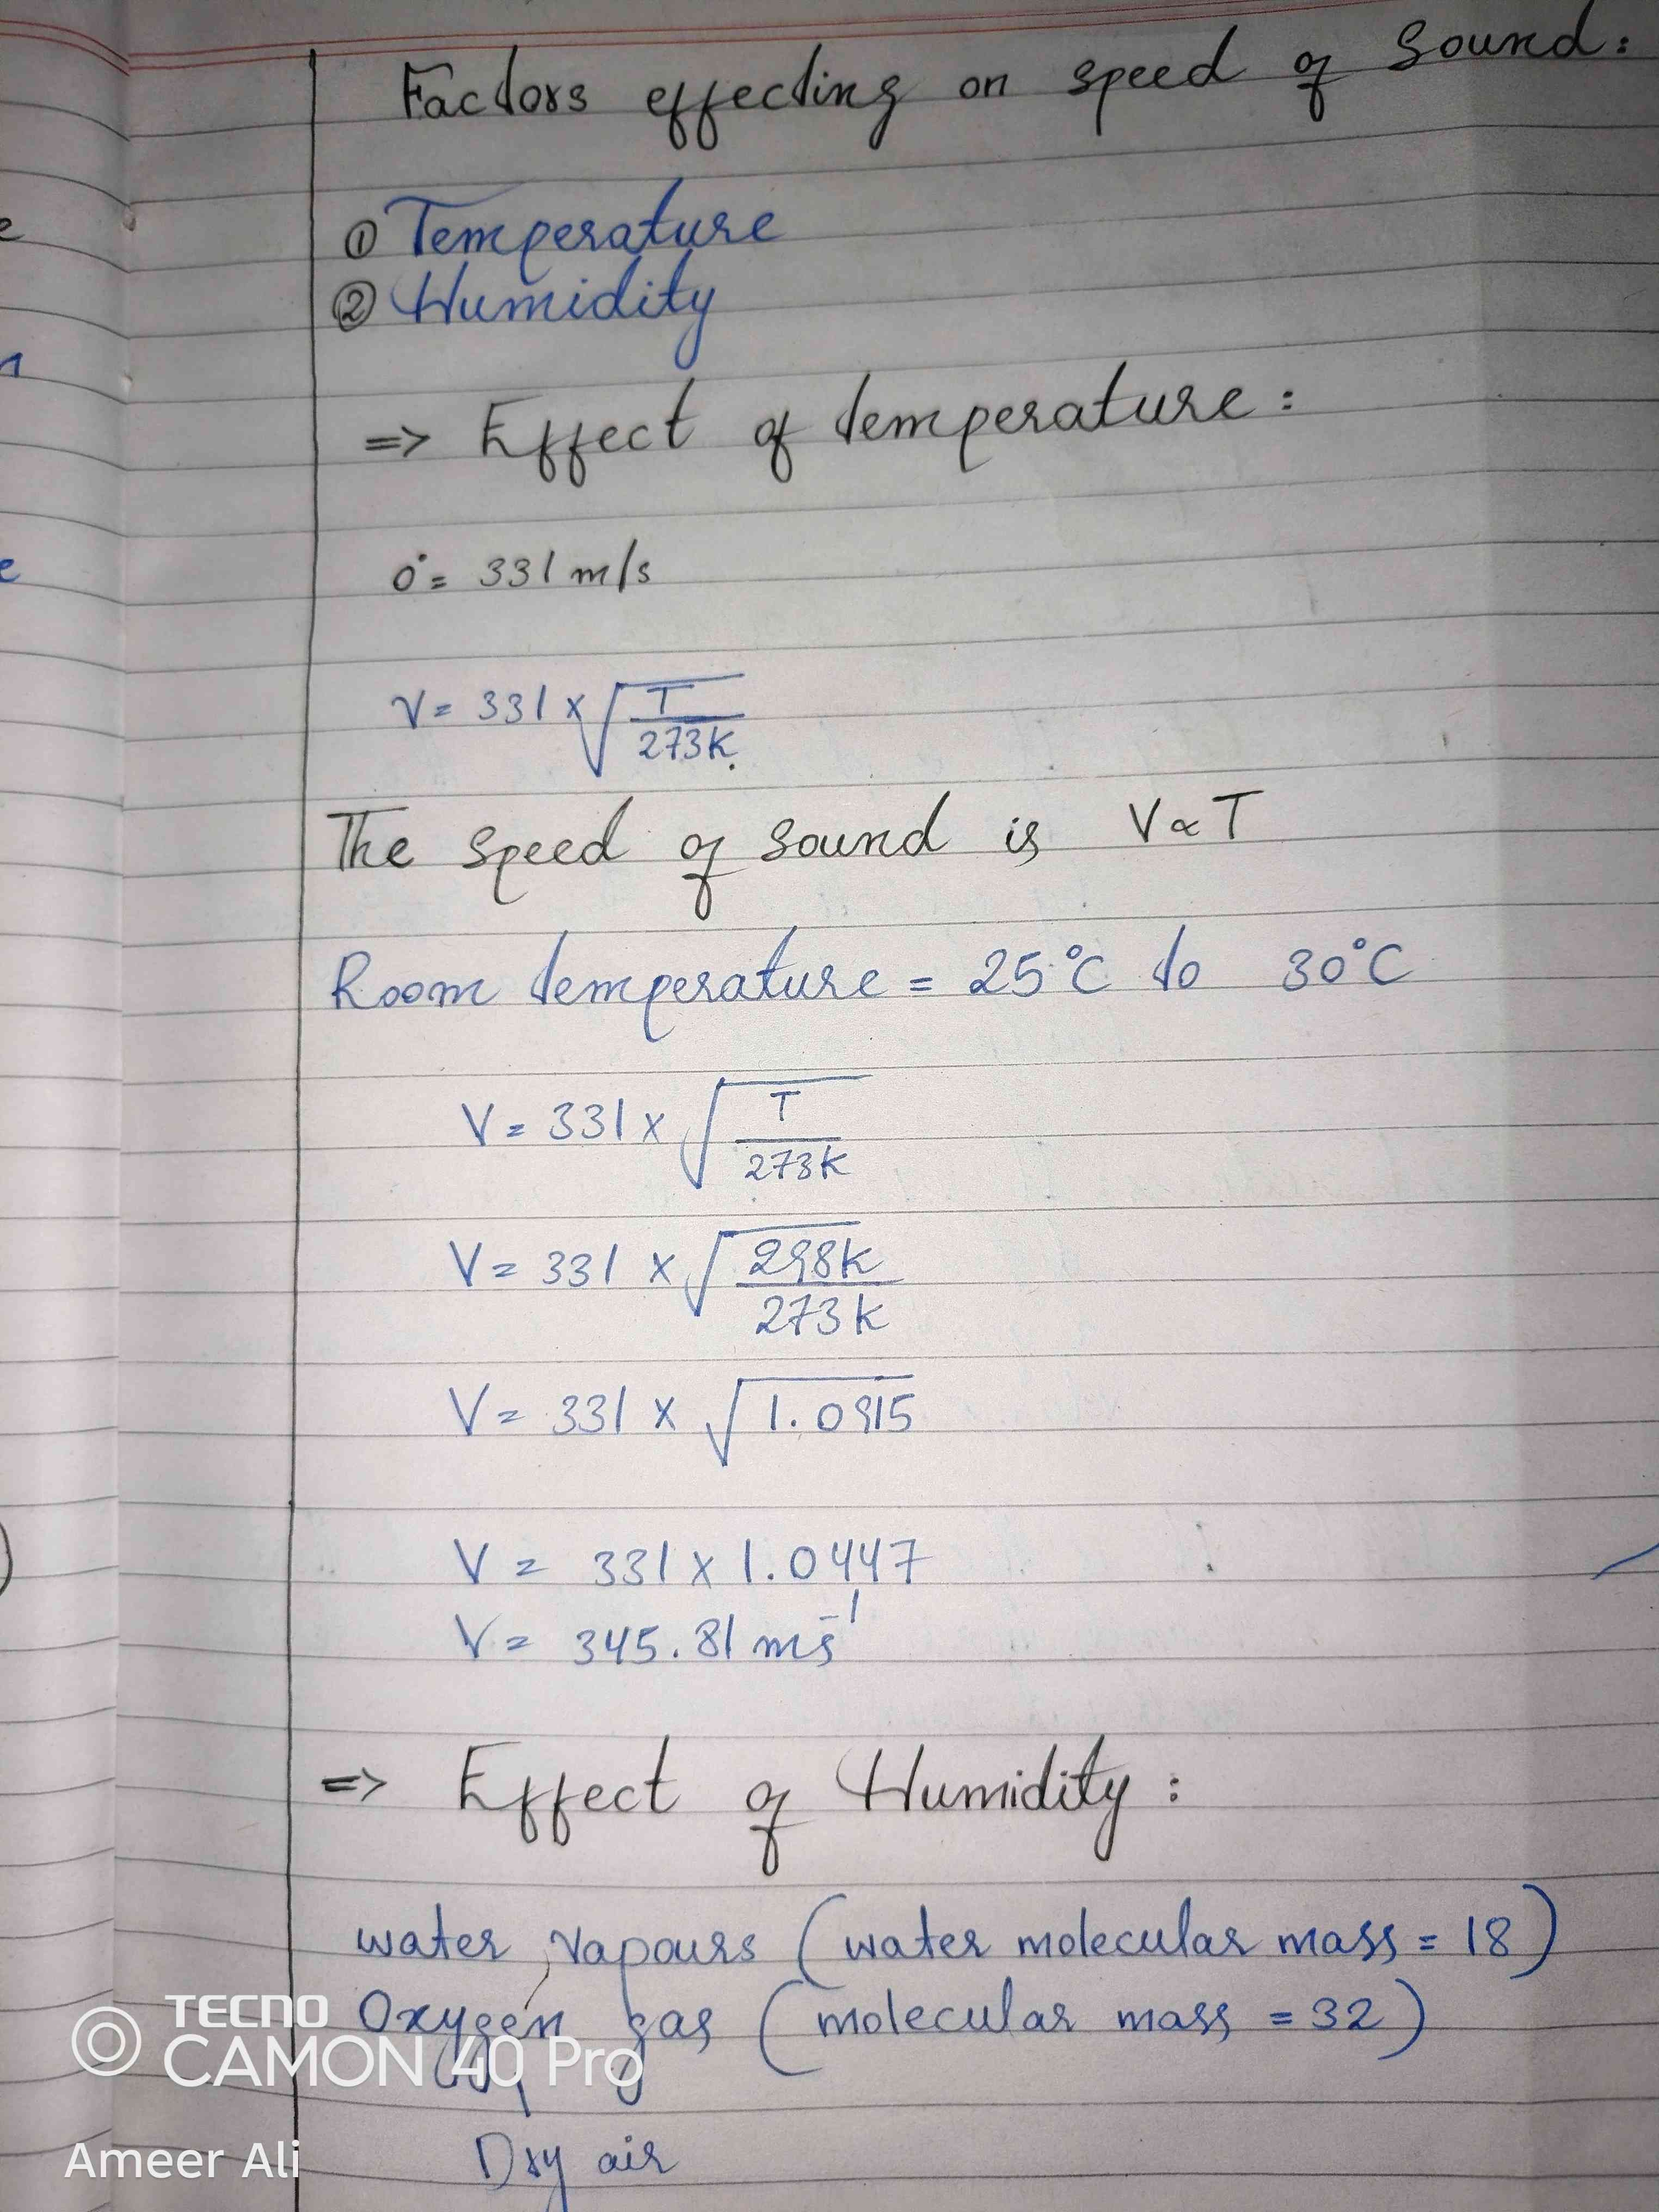 Factors effecting on speed of Sound:
① Temperature
② Humidity
=> Effect of temperature:
0° = 331 m/s
V = 331 × √T/273K.
The speed of sound is V∝T
Room temperature = 25°C to 30°C
V = 331 × √T/273K
V = 331 × √298K/273K
V = 331 × √1.0915
V = 331 × 1.0447
V = 345.81 ms⁻¹
=> Effect of Humidity:
water vapours (water molecular mass = 18)
Oxygen gas (molecular mass = 32)
Dry air
TECNO
CAMON 40 Pro
Ameer Ali